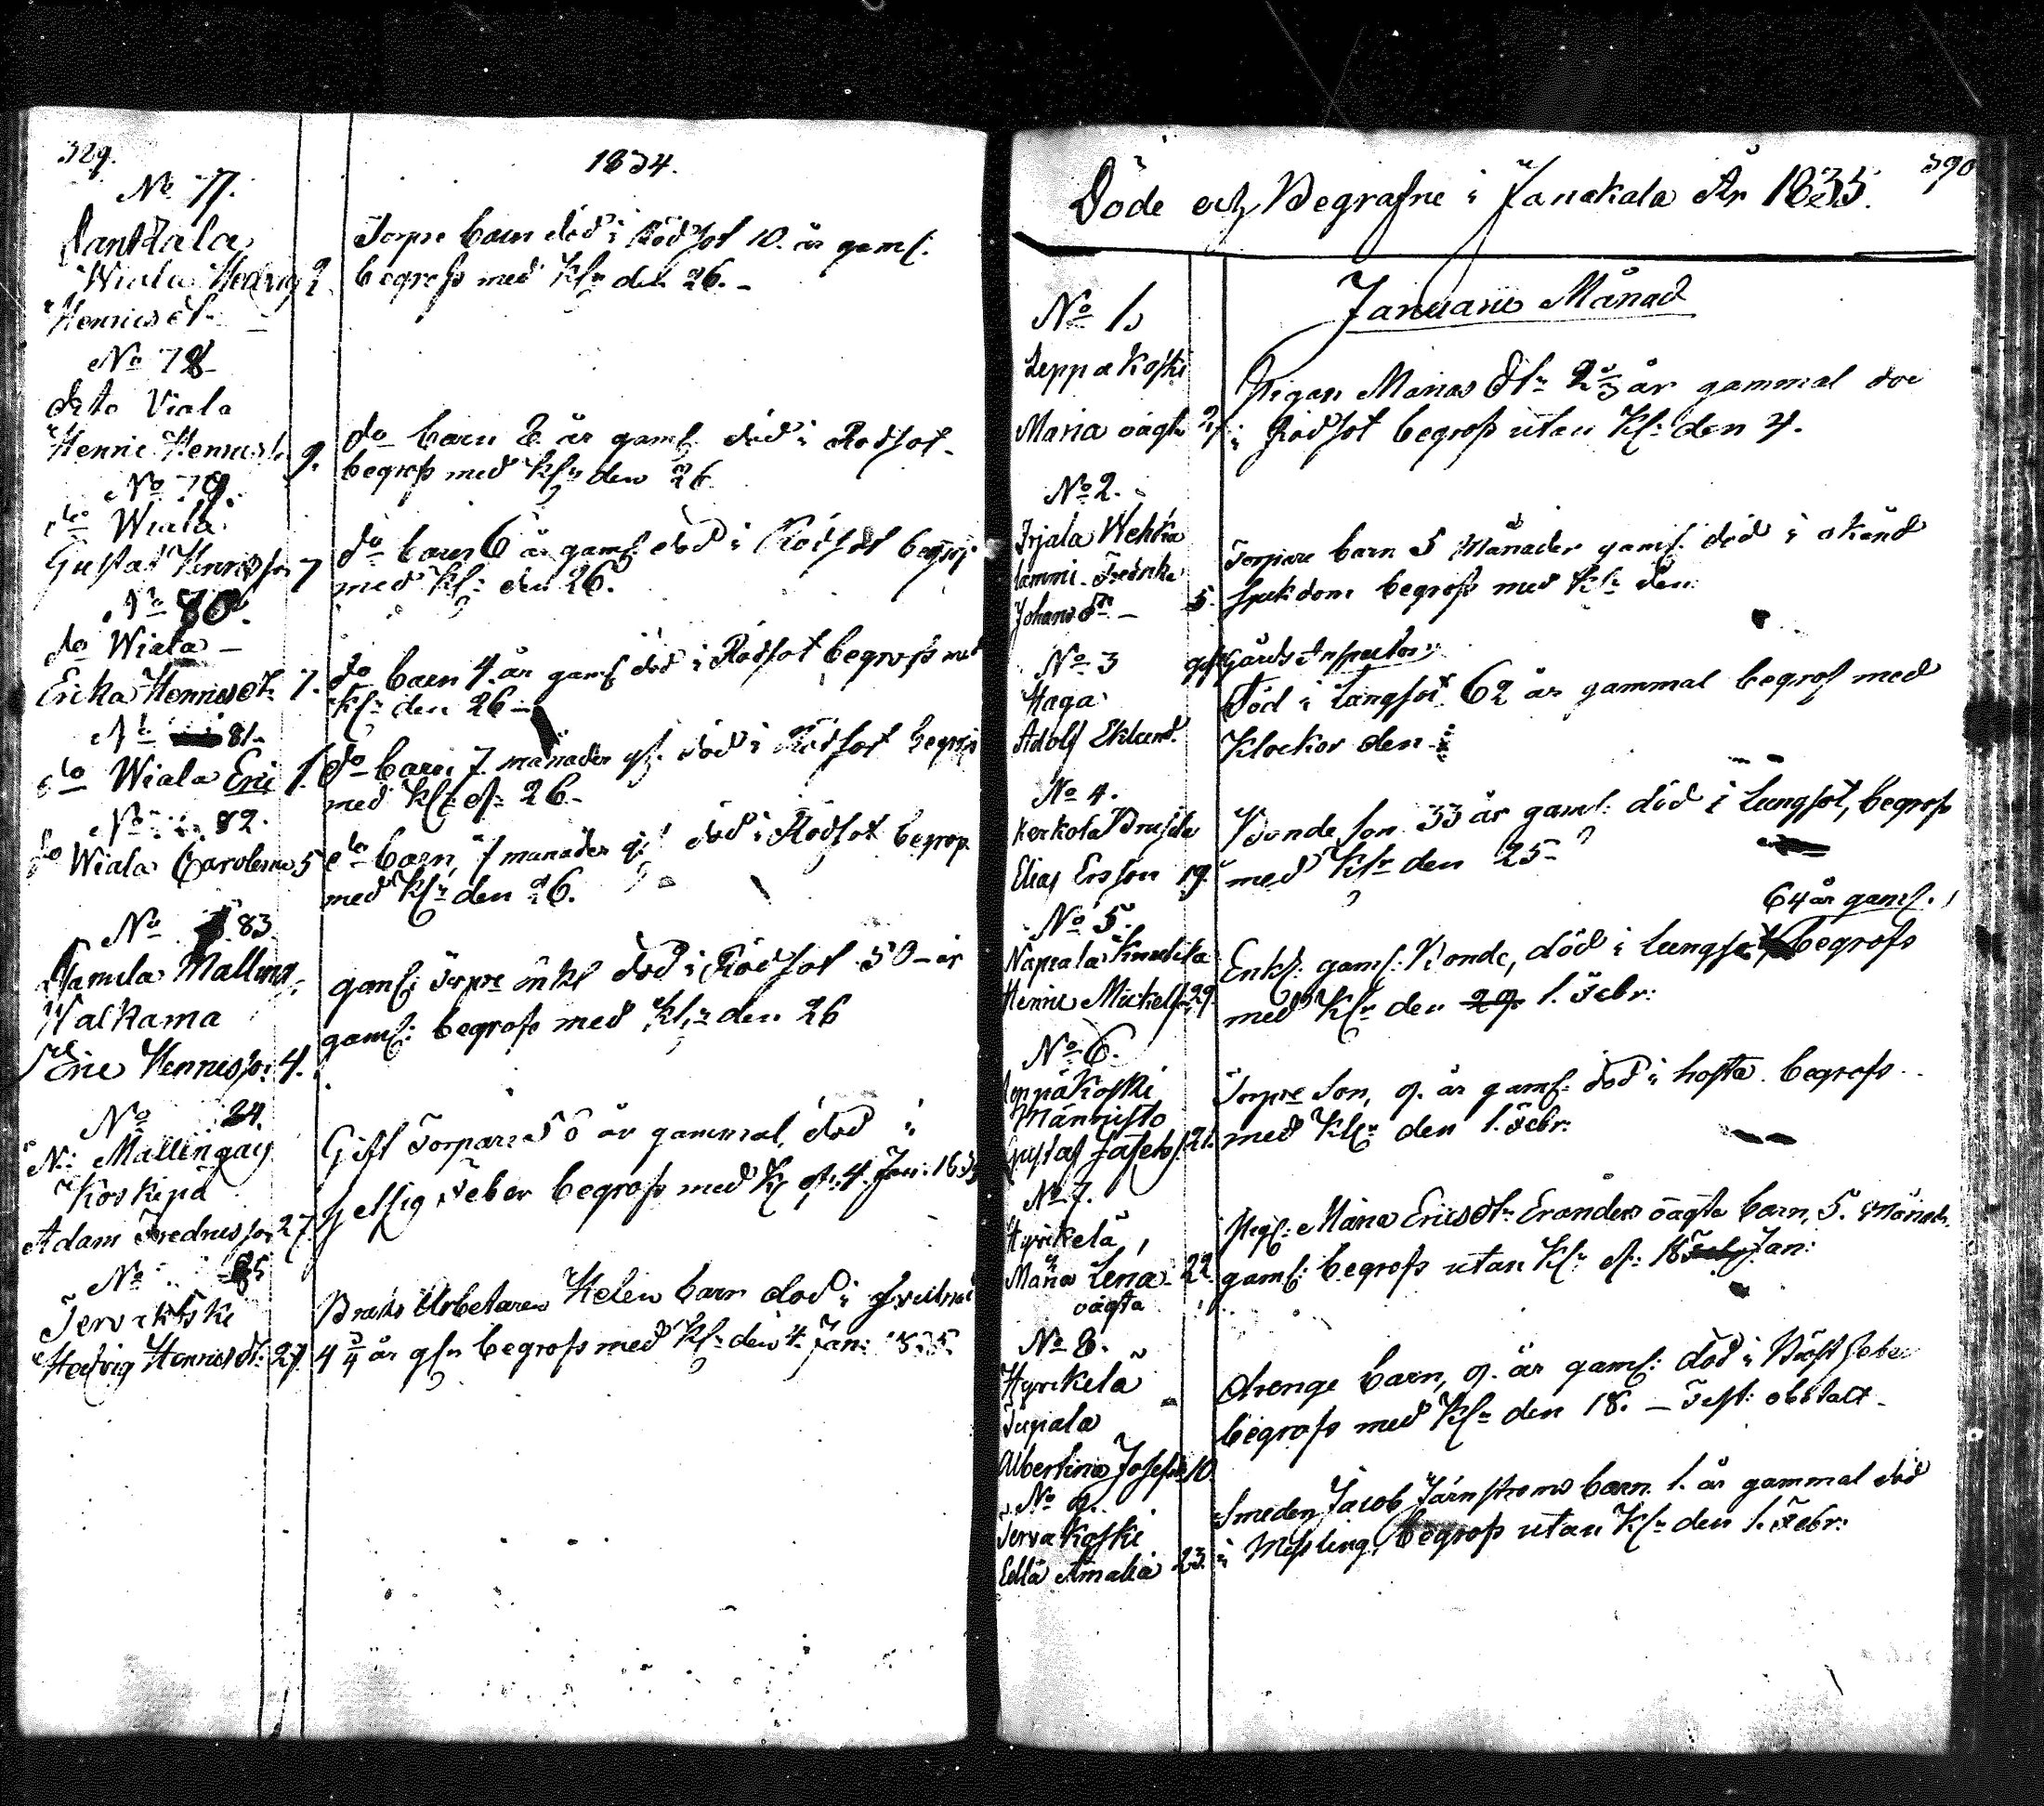 329.
1834.
No 77.
Wiala Hedvig 2.
Henricsdr
Torpre barn död i Rödsot 10. år gaml:
begrofs med Klr den 26.
No 78
dito Viala
Henric Henricss. 9.
do barn 8 år gaml: död i Rodsot
begrofs med Klr den 26
No 79.
do Wiala
Gustaf Henricsson 7
do barn 6 år gaml: död i Rödsot begrofs
med Kl: den 26.
No 80.
do Wiala
Erica Henricsdr 7.
do barn 4. år gaml död i Rödsot begrofs med
Klr den 26
No 81.
do Wiala Eric 1.
do barn 7. månader gl. död i Rödsot begrofs
med Klr d: 26.
No 82.
do Wiala Carolina 5
do barn, 7 månader gl död i Rödsot begrofs
med Klr den 26.
No 83
Mallinq
Walkama
Eric Henricsson 4.
gaml: Torpre Enkl död i Rödsot 50 år
gaml: begrofs med Klr den 26
No 84.
N: Mallinqais
Koskipä
Adam Fredricsson 27.
Gift Torpare 50 år gammal, död i
Feber begrofs med Kl d: 4. Jan: 1835
No 85
Tervakoski
Hedvig Henricsdr. 27
Bruks Arbetaren barn död i
4 3/4 år glr begrofs med Klr den 4 Jan: 1835.
390
Döde och Begrafne i Janakala År 1835.
Januarii Månad
No 1.
Leppäkoski
Maria oägta 2.
Pigan Marias dr 2 2/3 år gammal död
i Rödsot begrofs utan Kl: den 4.
No 2.
Irjala Wehka
lammi Fredrika
Johansdr 5.
Torpare barn 5 Månader gaml. död i okänd
sjukdom begrofs med Klr den
No 3
Haga
Adolf Eklund.
Gårds Inspector
Död i Lungsot 62 år gammal begrofs med
Klockor den
No 4.
Kerkola
Elias Ersson 19.
Bonde son 33 år gaml. död i Lungsot, begrofs
med Klr den 25
No 5.
Napiala Knutila
Henric Mickelss. 29.
64 år gaml.
Enkl: gaml: Bonde, död i Lungsot begrofs
med Klr den 29 1. Febr:
No 6.
Leppäkoski
Männistö
Gustaf 21.
Torpre Son, 9. år gaml: död i hosta begrofs
med Klr den 1. Febr:
No 7.
Hyvikelä
Maria Lena 22.
oägta
Pig: Maria Ericsdr Eranders oägta barn, 5. Månad.
gaml: begrofs utan Klr d: 18 Jan:
No 8.
Hyvikelä
Albertina Josefsdr 10
Drenge barn, 9. år gaml: död i Bröst feber
begrofs med Klr den 18. – Test: obstalt
No 9.
Tervakoski
Edla Amalia 23.
Smeden Jacob Järnströms barn 1. år gammal död
i Messling, begrofs utan Klr den 1. Febr: